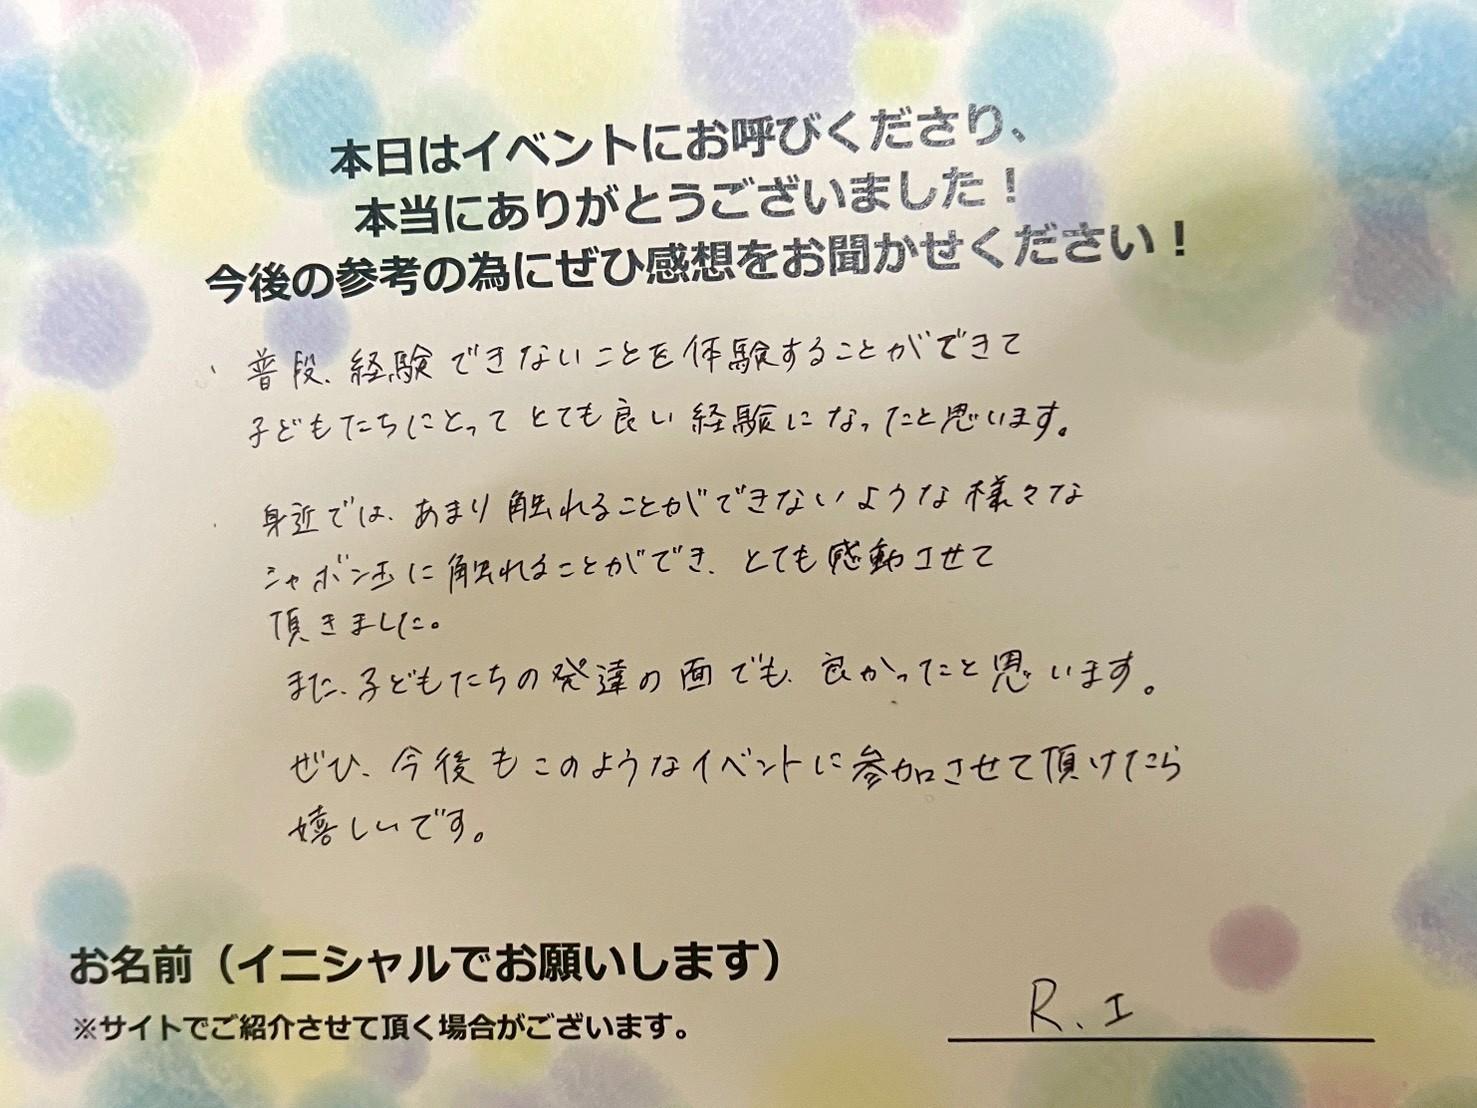 本日はイベントにお呼びくださり、
本当にありがとうございました！
今後の参考の為にぜひ感想をお聞かせください！
・普段、経験できないことを体験することができて
子どもたちにとってとても良い経験になったと思います。
・身近では、あまり触れることができないような様々な
シャボン玉に触れることができ、とても感動させて
頂きました。
また、子どもたちの発達の面でも、良かったと思います。
ぜひ、今後もこのようなイベントに参加させて頂けたら
嬉しいです。
お名前（イニシャルでお願いします）
※サイトでご紹介させて頂く場合がございます。
R.I